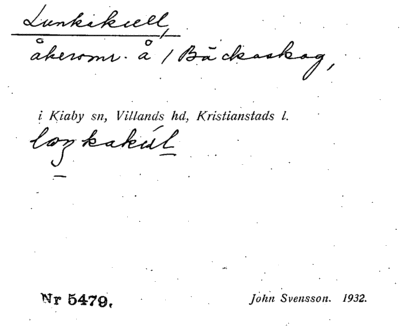 Lunkikull,
åkeromr. å / Bäckaskog,
i Kiaby sn, Villands hd, Kristianstads l.
Nr 5479. John Svensson. 1932.